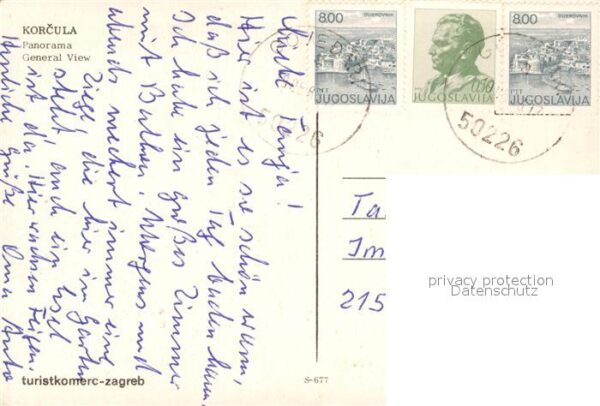 KORČULA
Panorama
General View
Liebe Tanja!
Hier ist es so schön warm,
daß ich jeden Tag baden kann.
Ich habe ein großes Zimmer
mit Balkon. Morgens und
abends meckert immer eine
Ziege, die hier im Garten
steht, auch ein Esel
ist da. Hier wachsen Feigen.
Herzliche Grüße Oma
turistkomerc-zagreb
S-677
8.00
DUBROVNIK
PTT
JUGOSLAVIJA
0.10
JUGOSLAVIJA
8.00
DUBROVNIK
PTT
JUGOSLAVIJA
50226
50226
Ta
Im
215
privacy protection
Datenschutz